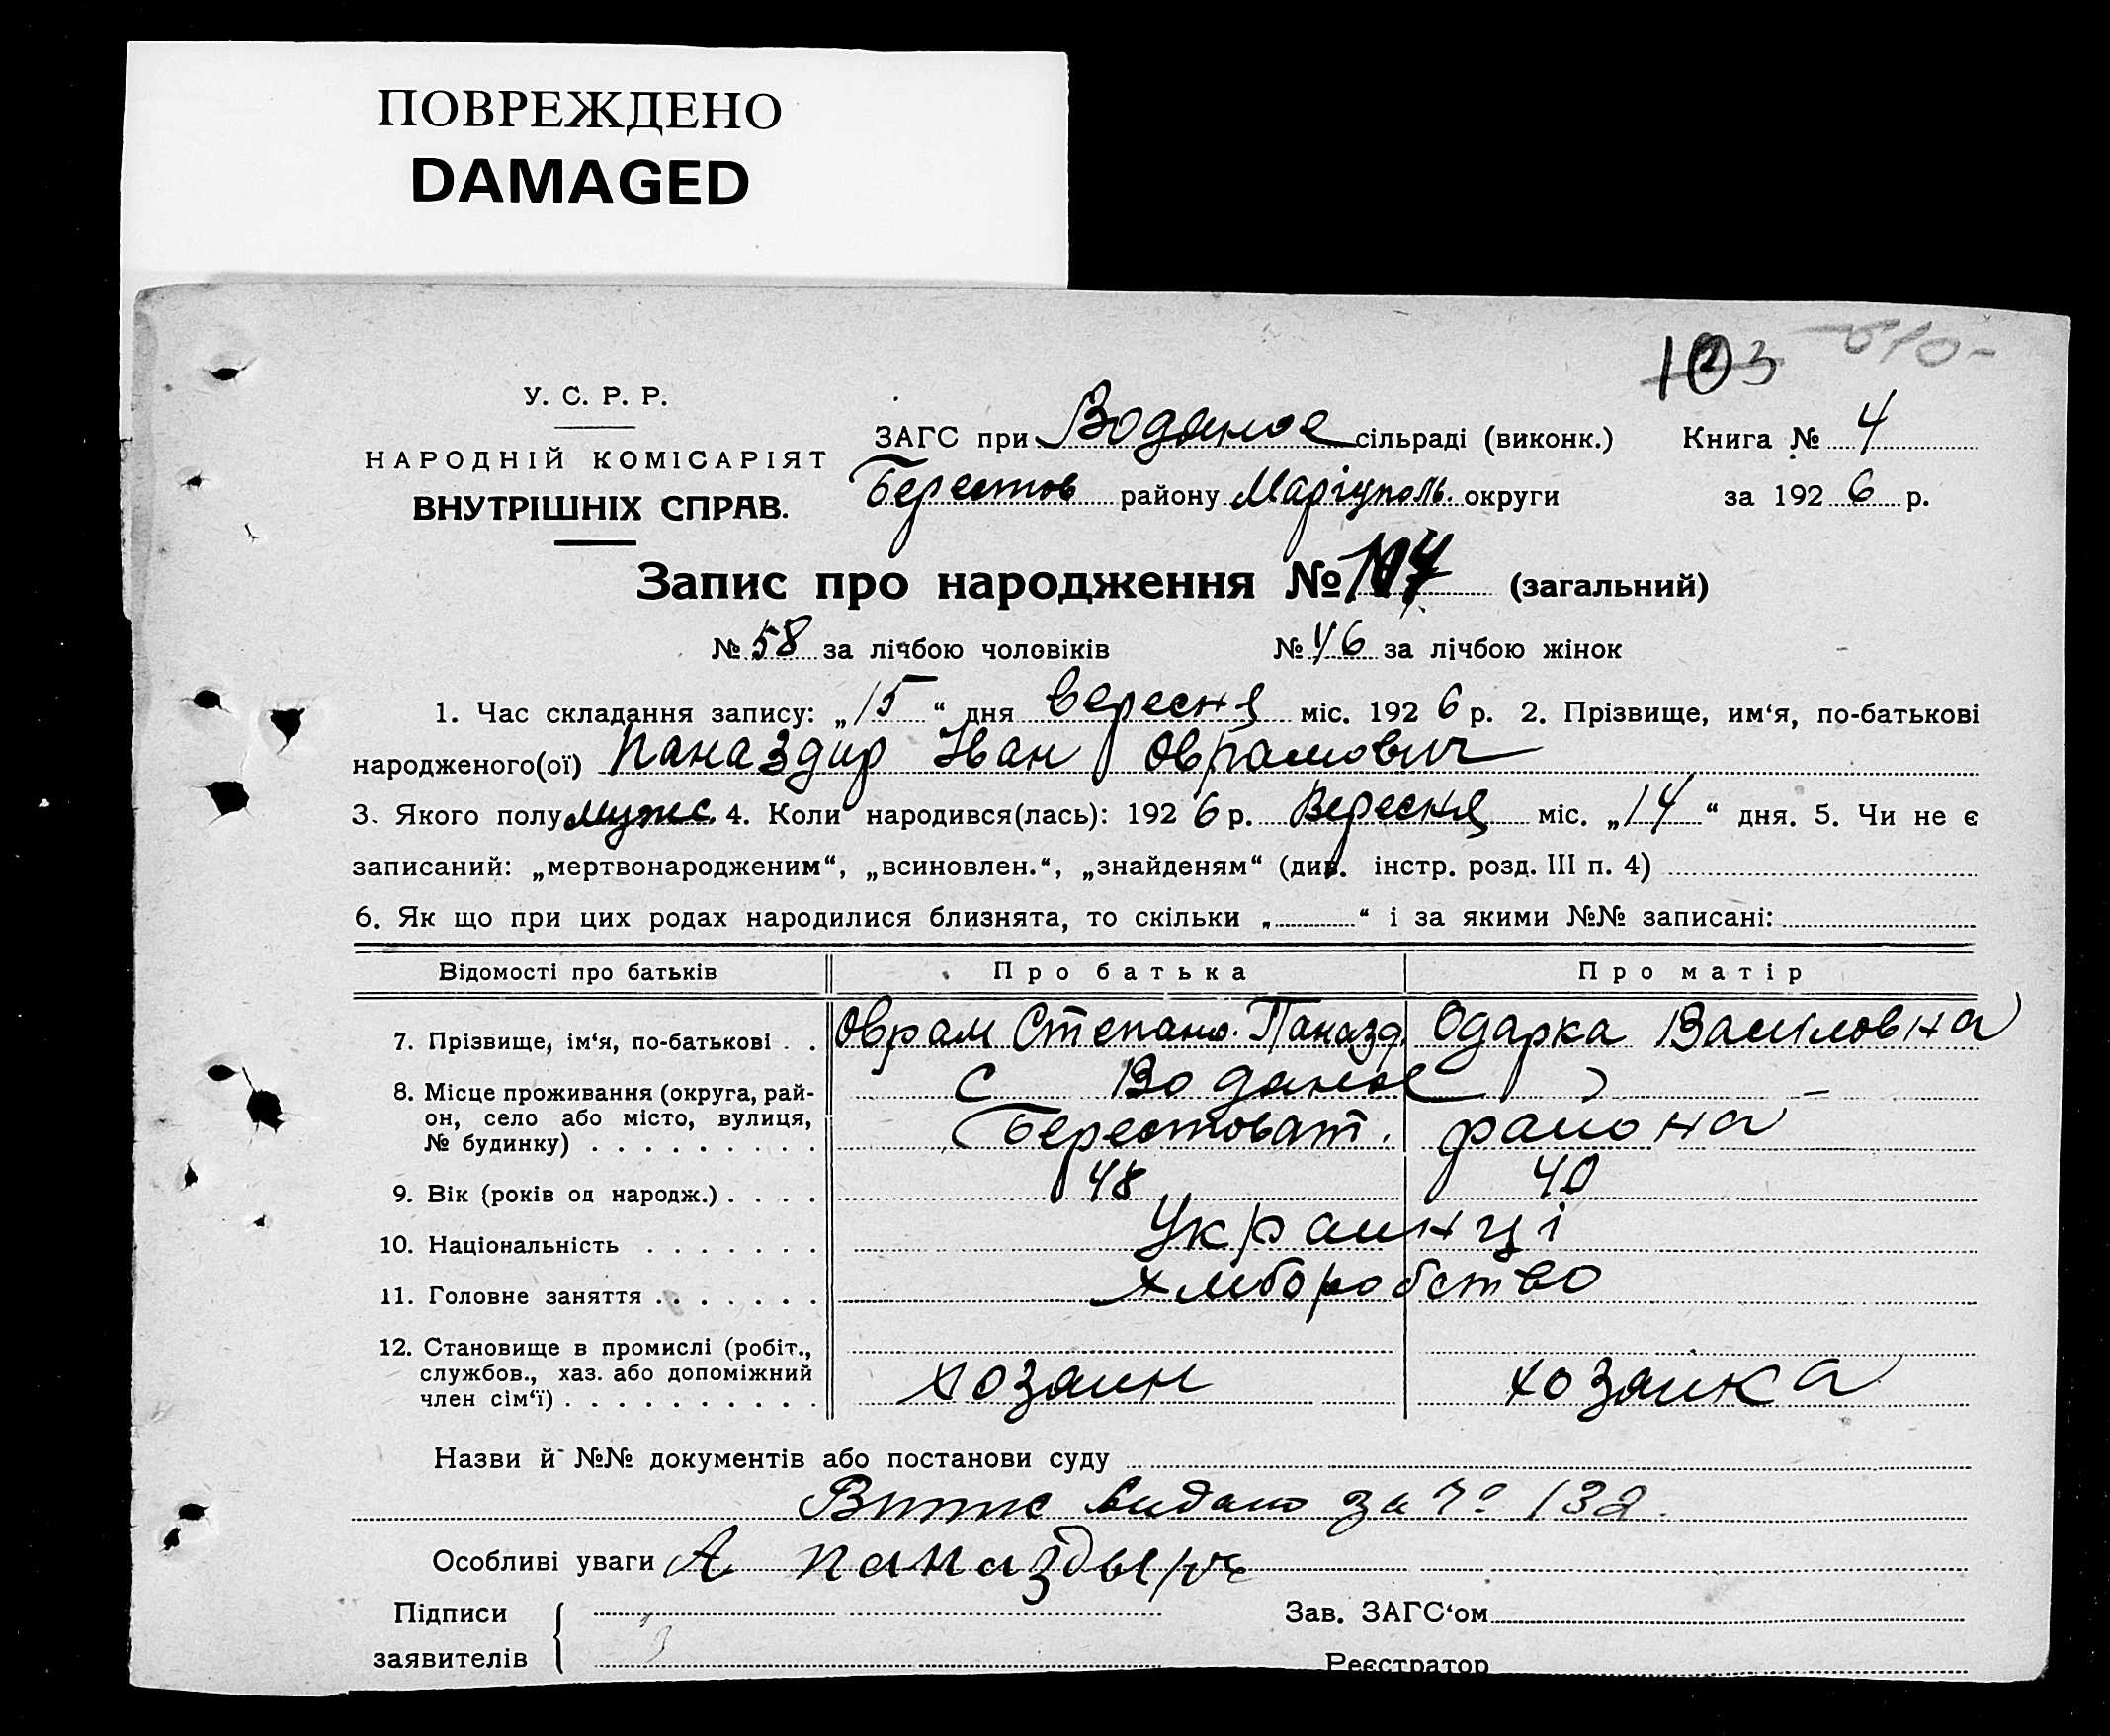 ПОВРЕЖДЕНО
DAMAGED
103
У. С. Р. Р.
НАРОДНІЙ КОМІСАРІЯТ
ВНУТРІШНІХ СПРАВ.
ЗАГС при Водяное сільраді (виконк.) Книга № 4
Берестов району Маріуполь. округи за 1926 р.
Запис про народження № 104 (загальний)
№ 58 за лічбою чоловіків № 46 за лічбою жінок
1. Час складання запису: „15“ дня вересня міс. 1926 р. 2. Прізвище, им‘я, по-батькові
народженого(ої) Паназдир Іван Оврамович
3. Якого полу мужс. 4. Коли народився(лась): 1926 р. Вересня міс. „14“ дня. 5. Чи не є
записаний: „мертвонародженим“, „всиновлен.“, „знайденям“ (див. інстр. розд. III п. 4)
6. Як що при цих родах народилися близнята, то скільки „ “ і за якими №№ записані:
Відомості про батьків Про батька Про матір
7. Прізвище, ім‘я, по-батькові . . Оврам Степано. Паназд. Одарка Василовна
8. Місце проживання (округа, рай- с Водяное
он, село або місто, вулиця, Берестоват. района
№ будинку) . . . . . . . . .
9. Вік (років од народж.) . . . . 48 40
10. Національність . . . . . . . Украинці
11. Головне заняття . . . . . . . хлиборобство
12. Становище в промислі (робіт.,
службов., хаз. або допоміжний хозяин хозяика
член сім‘ї) . . . . . . . . . .
Назви й №№ документів або постанови суду
Витис видано за № 132.
Особливі уваги А паназдырь
Підписи Зав. ЗАГС‘ом
заявителів Реєстратор